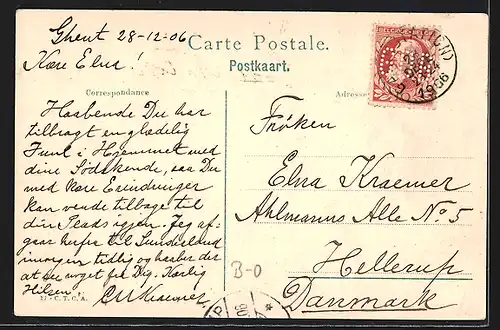 Ghent 28-12-06
Carte Postale.
Postkaart.
Kære Elna!
Correspondance
Adresse
Haabende Du har
tilbragt en glædelig
Juul i Hjemmet med
dine Södskende, saa Du
med kære Erindringer
kan vende tilbage til
din Plads igjen. Jeg af-
gaar herfra til Sunderland
imorgen tidlig og haaber der
at see noget fra Dig. Kærlig
Hilsen.
Kraemer
21 - C.T.C.A.
Fröken
Elna Kraemer
Ahlmanns Alle No 5
Hellerup
Danmark
B-O
1906